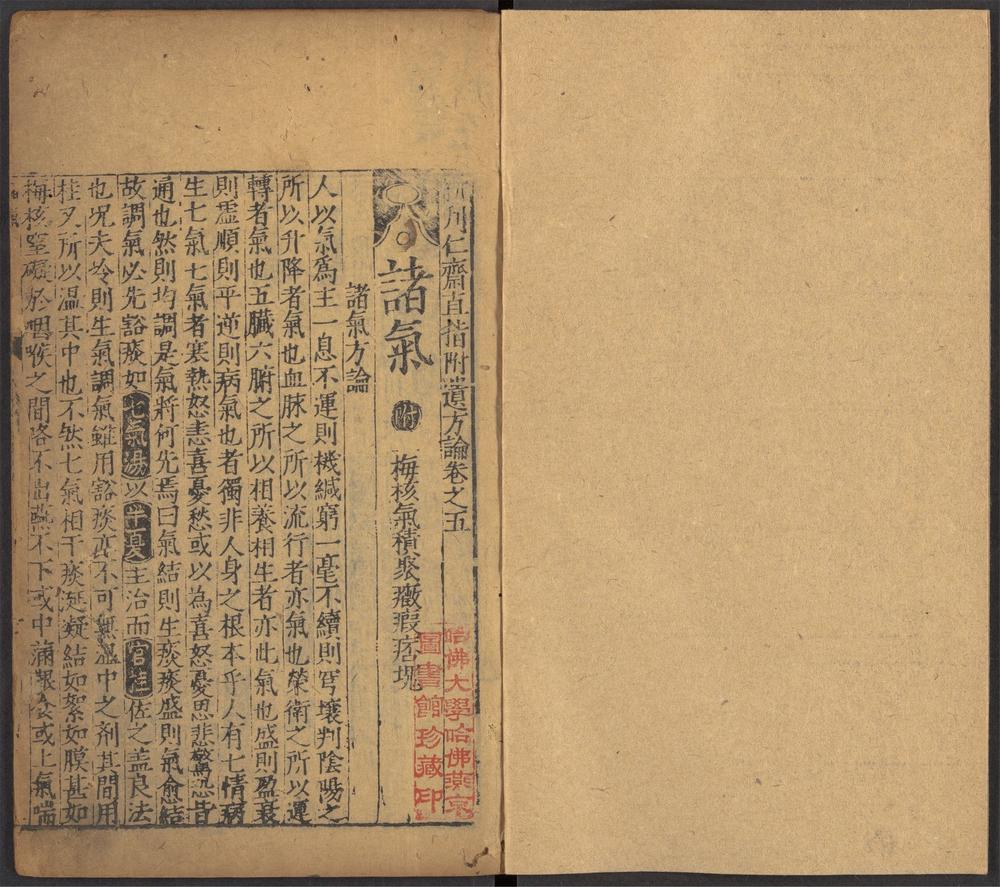 新刊仁齋直指附遺方論卷之五
諸氣 附 梅核氣積聚癥瘕痞塊
諸氣方論
人以氣爲主一息不運則機緘窮一毫不續則穹壤判陰陽之
所以升降者氣也血脉之所以流行者亦氣也榮衛之所以運
轉者氣也五臟六腑之所以相養相生者亦此氣也盛則盈衰
則虛順則平逆則病氣也者獨非人身之根本乎人有七情病
生七氣七氣者寒熱怒恚喜憂愁或以為喜怒憂思悲驚恐皆
通也然則均調是氣將何先焉曰氣結則生痰痰盛則氣愈結
故調氣必先豁痰如七氣湯以半夏主治而官桂佐之盖良法
也况夫冷則生氣調氣雖用豁痰亦不可無溫中之劑其間用
桂又所以温其中也不然七氣相干痰涎凝結如絮如膜甚如
梅核窒礙於咽喉之間咯不出嚥不下或中滿艱食或上氣喘
哈佛大學哈佛燕京
圖書館珍藏印